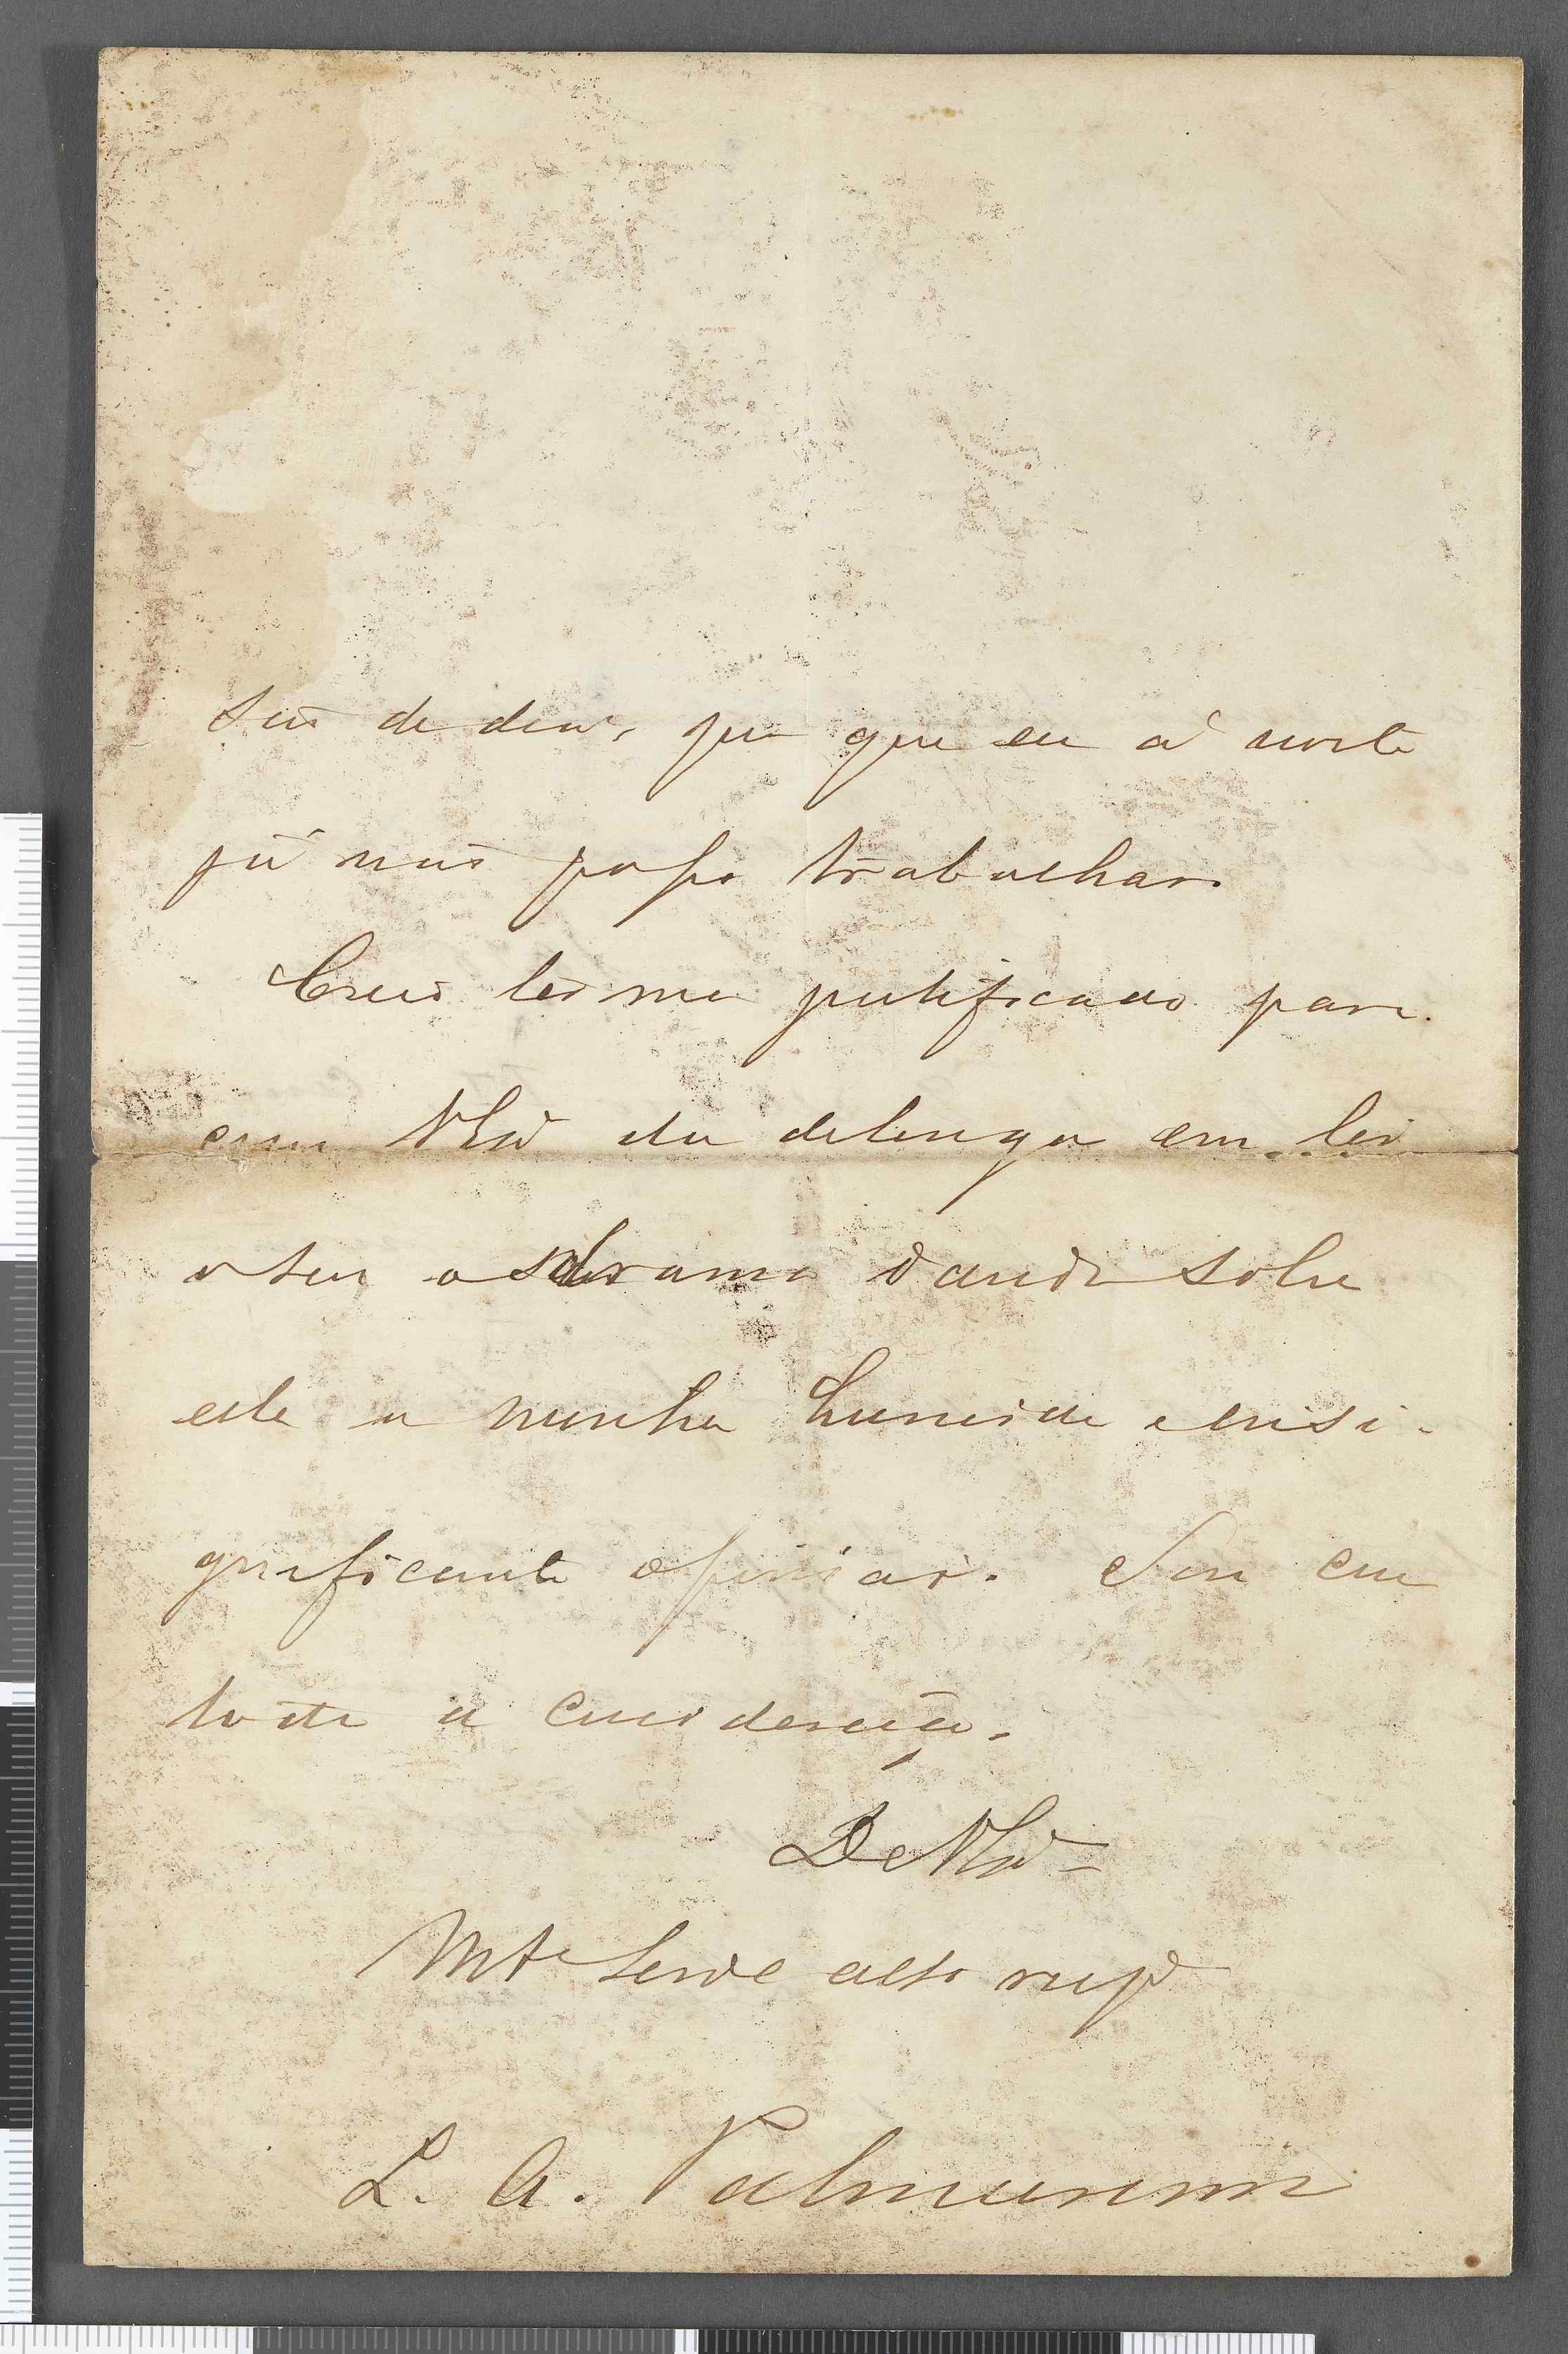 são de dia, que que eu á noite
já não posso trabalhar.
Creio ter-me justificado para
com VSª da delonga em ler
o seu drama dando sobre
este a minha humilde e insi-
gnificante opinião. Sou com
toda a consideração.
De VSª
Mto Servº e alto resp
L. A. Palmeirim